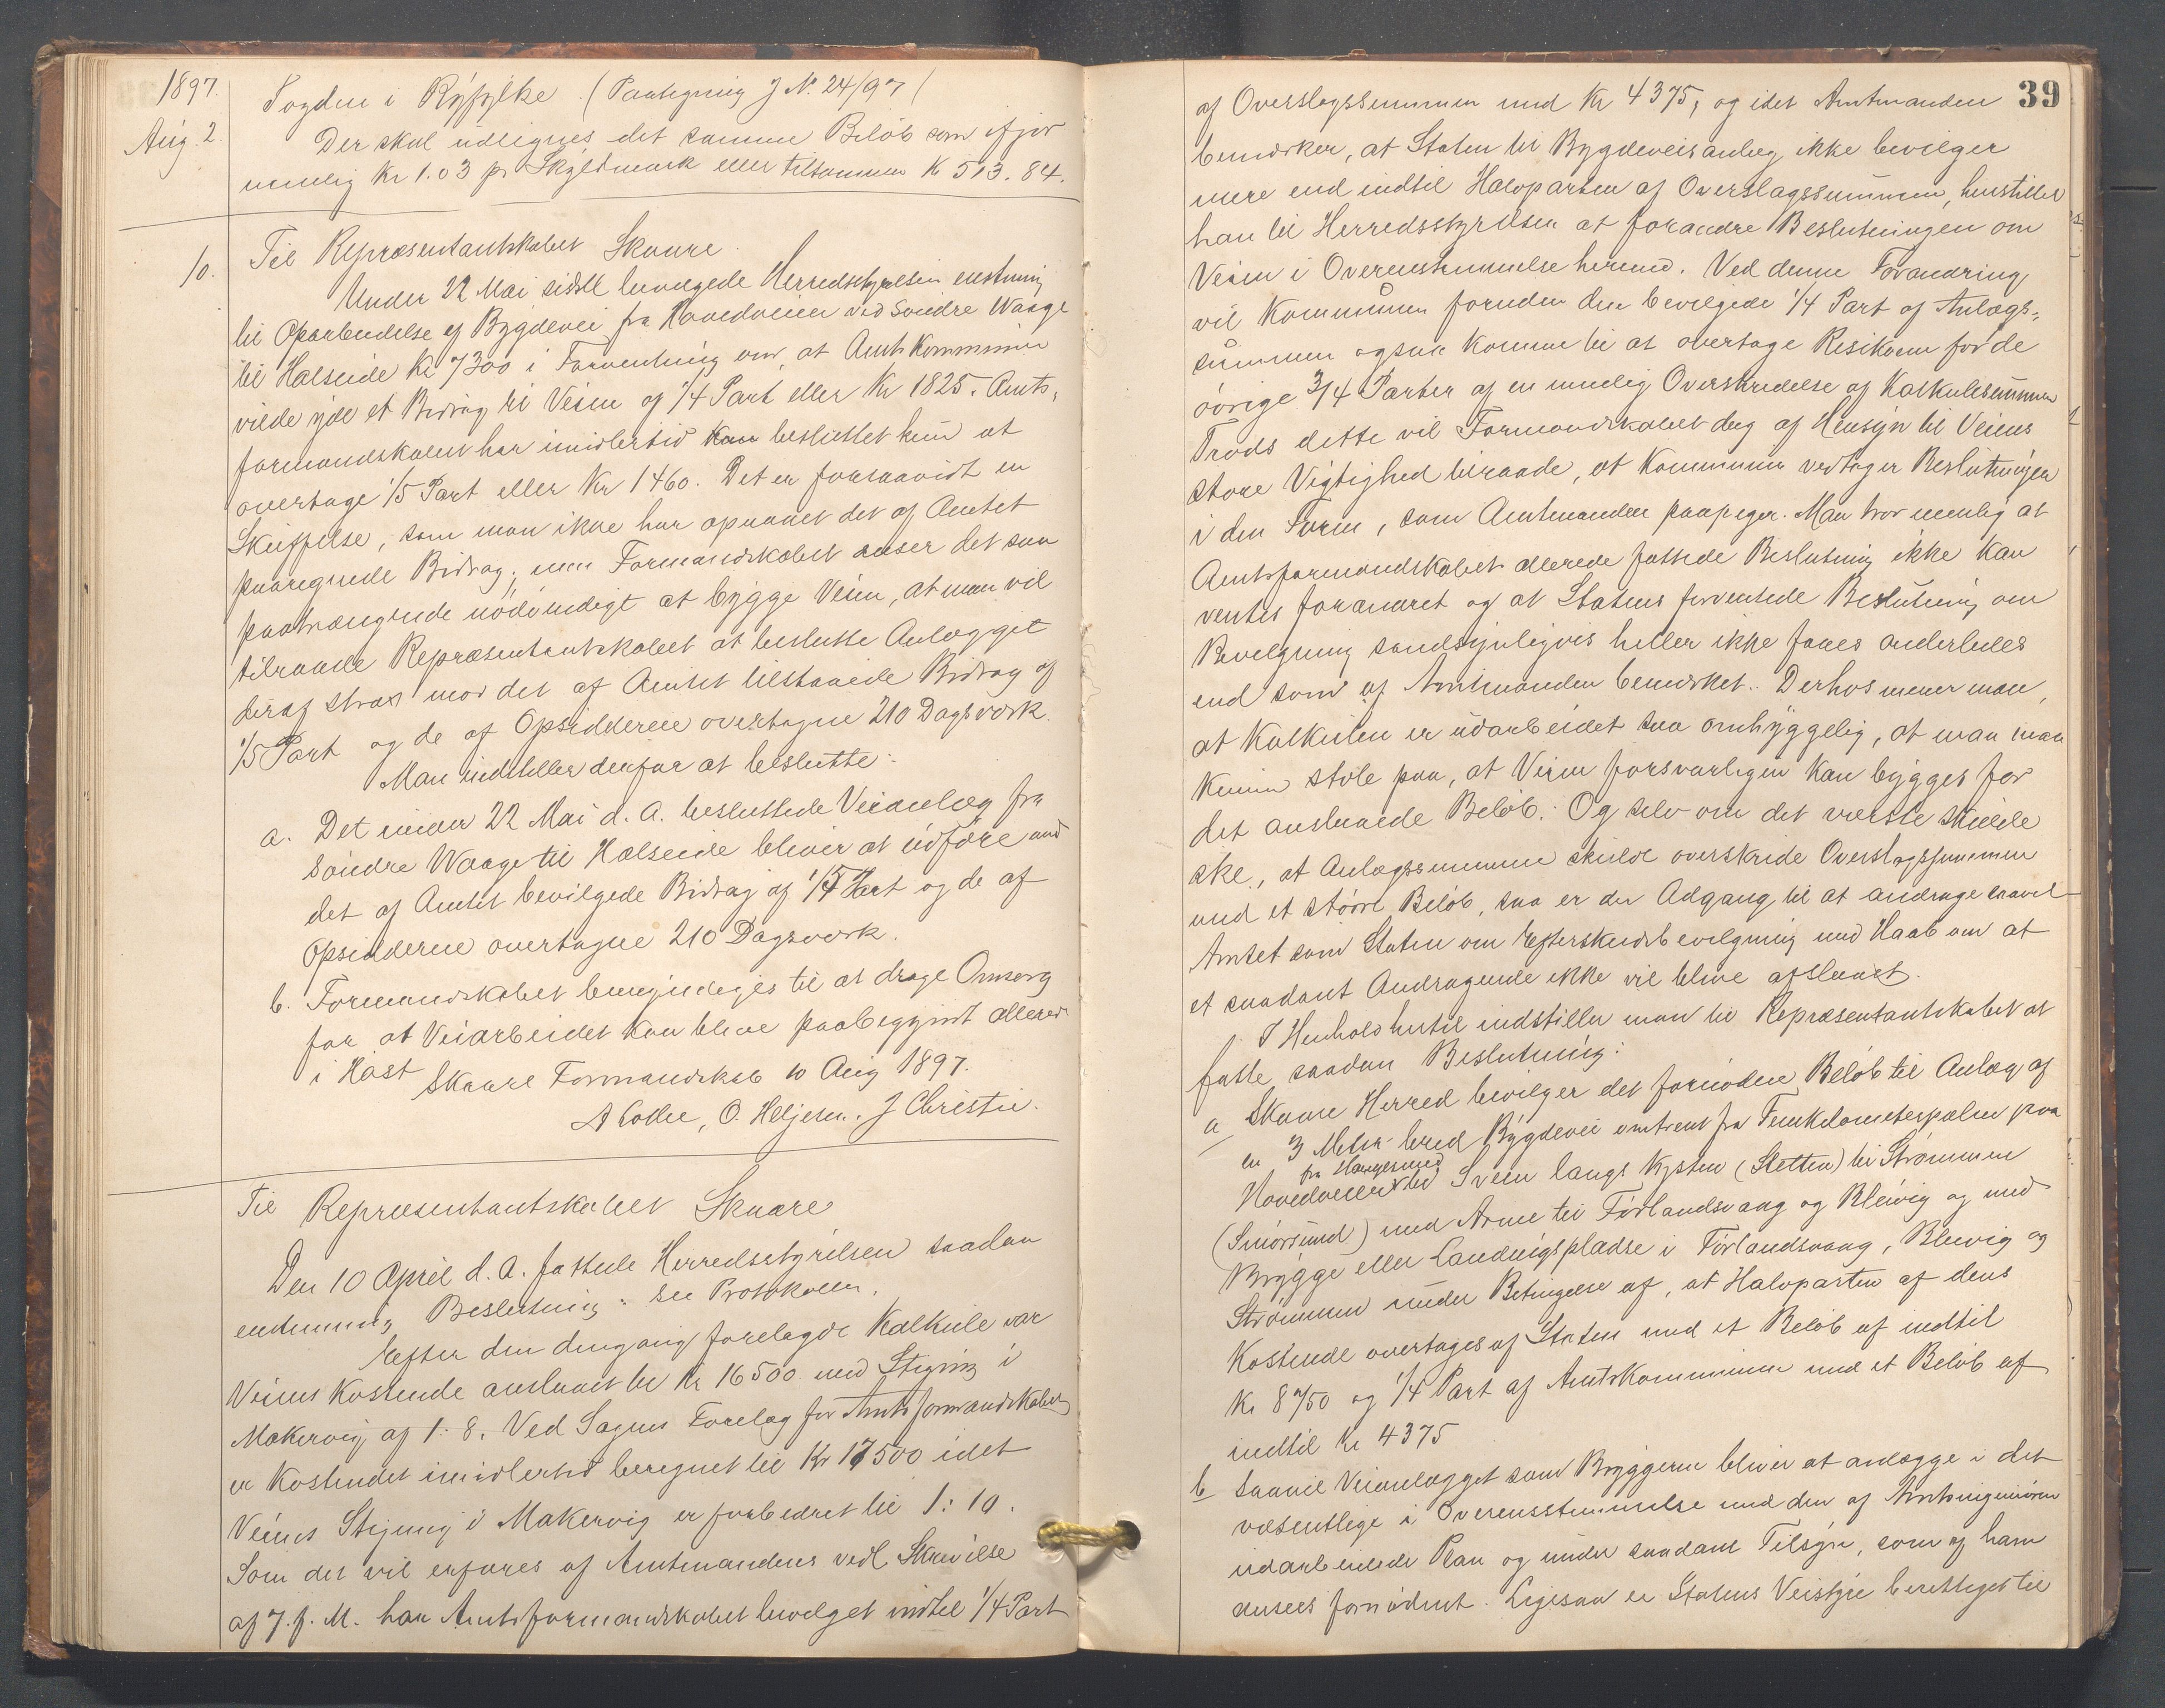 1897.
Aug. 2.
Fogden i Ryfylke. (Paategning J N. 24/97)
Der skal udlignes det samme Beløb som ifjor
nemlig Kr 1.03 pr Skyldmark eller tilsammen Kr 513.84.
10.
Til Repræsentantskabet Skaare.
Under 22 Mai sidstl bevilgede Herredsstyrelsen enstemmig
til Oparbeidelse af Bygdevei fra Hovedveien ved Søndre Waage
til Halseide Kr 7300 i Forventning om, at Amtskommunen
vilde yde et Bidrag til Veien af 1/4 Part eller Kr 1825. Amts-
formandskabet har imidlertid kun besluttet kun at
overtage 1/5 Part eller Kr 1460. Det er forsaavidt en
Skuffelse, som man ikke har opnaaet det af Amtet
paaregnede Bidrag; men Formandskabet anser det saa
paatrængende nødvendigt at bygge Veien, at man vil
tilraade Repræsentantskabet at beslutte Anlægget
deraf strax mod det af Amtet tilstaaede Bidrag af
1/5 Part og de af Opsidderne overtagne 210 Dagsværk.
Man indstiller derfor at beslutte:
a. Det under 22 Mai d. A. besluttede Veianlæg fra
Søndre Waage til Halseide bliver at udføre med
det af Amtet bevilgede Bidrag af 1/5 Part og de af
Opsidderne overtagne 210 Dagsværk.
b. Formandskabet bemyndiges til at drage Omsorg
for at Veiarbeidet kan blive paabegyndt allerede
i Høst
Skaare Formandskab 10 Aug 1897.
O. Heljesen. J Christie.
Til Repræsentantskabet Skaare
Den 10 April d. A. fattede Herredsstyrelsen saadan
enstemmig Beslutning: see Protokollen.
Efter den dengang forelagde Kalkule var
Veiens Kostende anslaaet til Kr 16500 med Stigning i
Makervig af 1:8. Ved Sagens Forelæg for Amtsformandskabet
er Kostendet imidlertid beregnet til Kr 17500 idet
Veiens Stigning i Makervig er forbedret til 1:10.
Som det vil erfares af Amtmandens vedl Skrivelse
af 7. f. M. har Amtsformandskabet bevilget indtil 1/4 Part
39
af Overslagssummen med Kr 4375, og idet Amtmanden
bemærker, at Staten til Bygdeveisanlæg ikke bevilger
mere end indtil Halvparten af Overslagssummen, henstiller
han til Herredsstyrelsen at forandre Beslutningen om
Veien i Overenstemmelse hermed. Ved denne Forandring
vil Kommunen foruden den bevilgede 1/4 Part af Anlægs-
summen ogsaa komme til at overtage Risikoen for de
øvrige 3/4 Parter af en mulig Overskridelse af Kalkulesummen
Trods dette vil Formandskabet dog af Hensyn til Veiens
store Vigtighed tilraade, at Kommunen vedtager Beslutningen
i den Form, som Amtmanden paapeger. Man tror nemlig at
Amtsformandskabets allerede fattede Beslutning ikke kan
ventes forandret og at Statens forventede Beslutning om
Bevilgning sandsynligvis heller ikke faaes anderledes
end som af Amtmanden bemærket. Derhos mener man,
at Kalkulen er udarbeidet saa omhyggelig, at man maa
kunne stole paa, at Veien forsvarligen kan bygges for
det anslaaede Beløb. Og selv om det værste skulde
ske, at Anlægssummen skulde overskride Overslagssummen
med et større Beløb, saa er der Adgang til at andrage saavel
Amtet som Staten om Efterskudsbevilgning med Haab om at
et saadant Andragende ikke vil blive afslaaet.
I Henhold hertil indstiller man til Repræsentantskabet at
fatte saadan Beslutning:
a Skaare Herred bevilger det fornødne Beløb til Anlæg af
en 3 Meter bred Bygdevei omtrent fra Femkilometerpælen paa
fra Haugesund
Hovedveien ved Sveen langs Kysten (Sletten) til Strømmen
(Smørsund) med Arme til Førlandsvaag og Bleivig og med
Brygge eller Landingspladse i Førlandsvaag, Bleivig og
Strømmen under Betingelse af, at Halvparten af dens
Kostende overtages af Staten med et Beløb af indtil
Kr 8750 og 1/4 Part af Amtskommunen med et Beløb af
indtil Kr 4375
b Saavel Veianlægget som Bryggerne bliver at anlægge i det
væsentlige i Overensstemmelse med den af Amtsingeniøren
udarbeidede Plan og under saadant Tilsyn, som af ham
ansees fornødent. Ligesaa er Statens Veistyre berettiget til